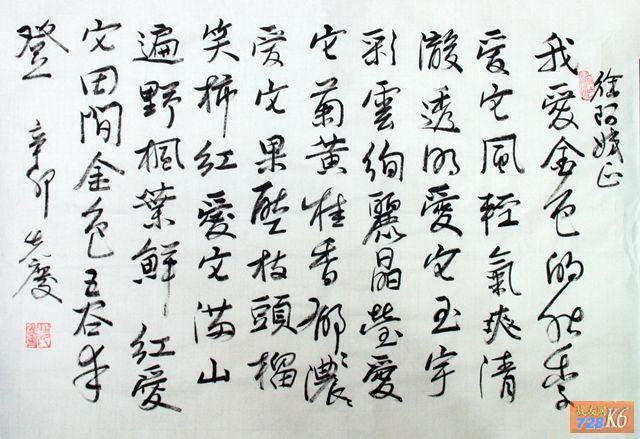 徐阿娥正
我愛金色的秋季
愛它風輕氣爽清
澈透明愛它玉宇
彩雲絢麗晶瑩愛
它菊黃桂香郁〻濃〻
愛它果壓枝頭榴
笑柿紅愛它滿山
遍野楓葉鮮紅愛
它田間金色五谷丰
登 辛卯 先慶
战友网
728K6